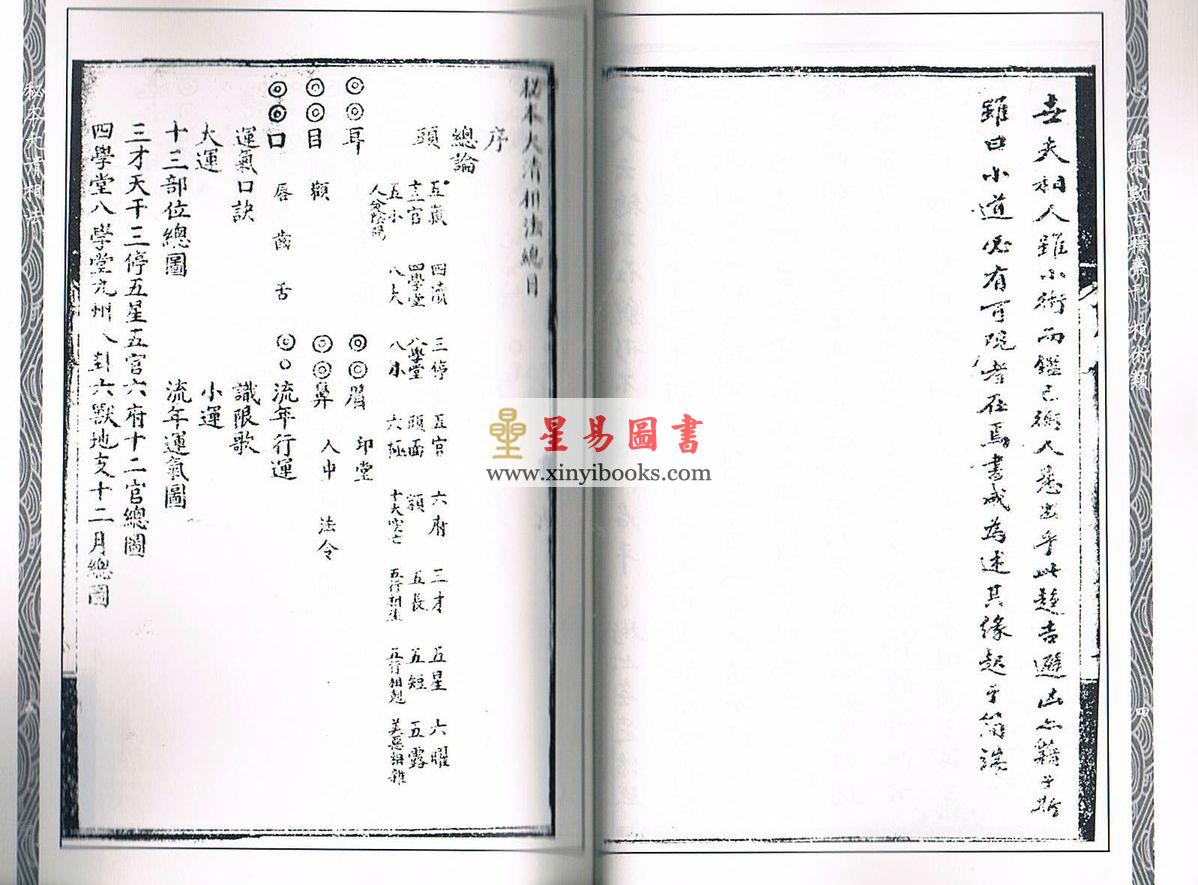 世夫相人雖小術而鑑己衡人悉出乎此趨吉避凶亦藉乎斯
雖曰小道必有可觀者在焉書成為述其緣起于簡端
四
秘本大清相法總目
序
總論
頭 五嶽 四瀆 三停 五官 六府 三才 五星 六曜
十二宮 四學堂 八學堂 頭面 額 五長 五短 五露
五小 八大 八小 六極 十大空亡 五行相生 五行相剋 美惡相雜
人分陰陽
耳 眉 印堂
目 顴 鼻 人中 法令
口 唇 齒 舌 流年行運
運氣口訣 識限歌
大運 小運
十三部位總圖 流年運氣圖
三才天干三停五星五宮六府十二宮總圖
四學堂八學堂九州八卦六獸地支十二月總圖
秘本大清相法
星易圖書
www.xinyibooks.com